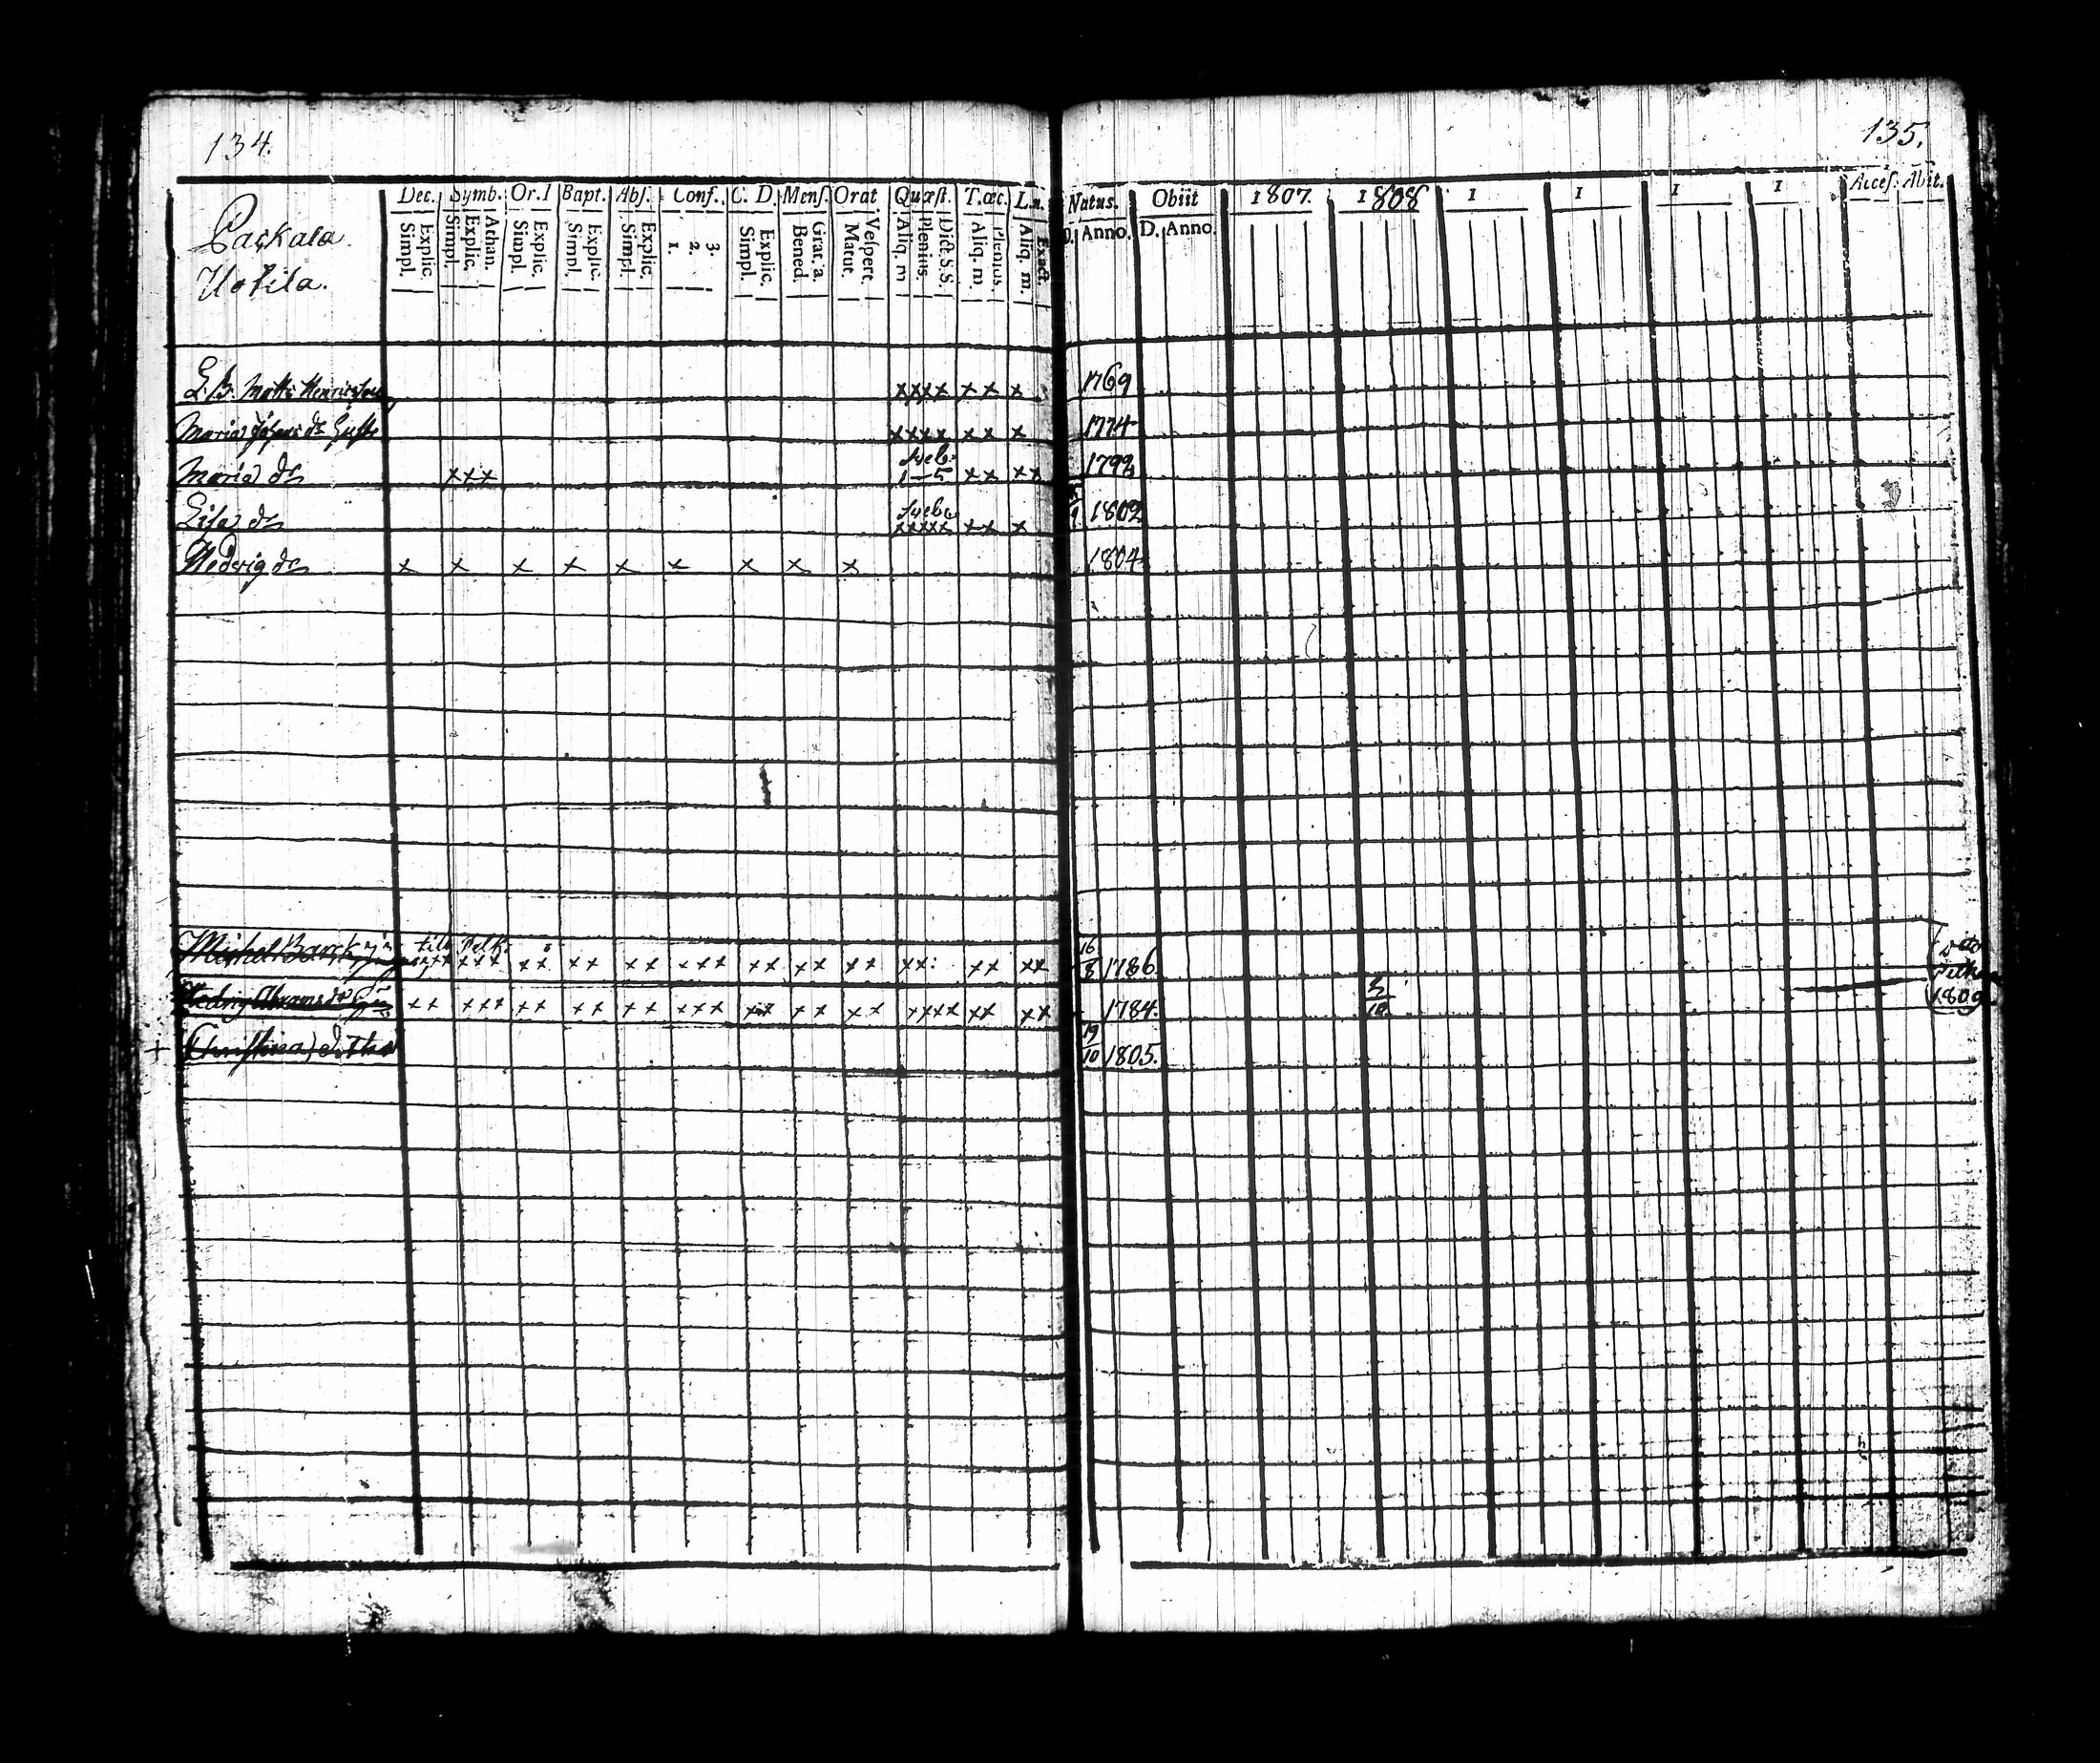 134.
135.
Dec. Symb. Or. I Bapt. Abſ. Conf. C. D. Menſ. Orat Quæſt. T. œc. L. n. Natus. Obiit 1807. 1808 1 1 1 1 Acceſ. Abit.
Explic. Simpl. Athan. Explic. Simpl. Explic. Simpl. Explic. Simpl. Explic. Simpl. 3. 2. 1. Explic. Simpl. Grat. a. Bened. Veſpert. Matut. Dict. S. S. Plenius. Aliq. m Plenius. Aliq. m. Exact. Aliq. m. D. Anno. D. Anno
Packala.
Uotila.
L. B. Matts Henricsson xxxx xx x 1769
Maria dr xxxx xx x 1774
Sveb.
Maria dr xxx 1–5 xx xx 179
Sveb.
Lisa dr xxxxx xx x 1802
Hedvig dr x x x x x x x x x 1804
till
Michel xxx xx xx xx xxx xx xx xx xx: xx xx 16/8 1786.
Hedvig Abramsdr xx xxx xx xx xx xxx xx xx xx xxxx xx xx 1784. 10 1809
+ Christina 19/10 1805.